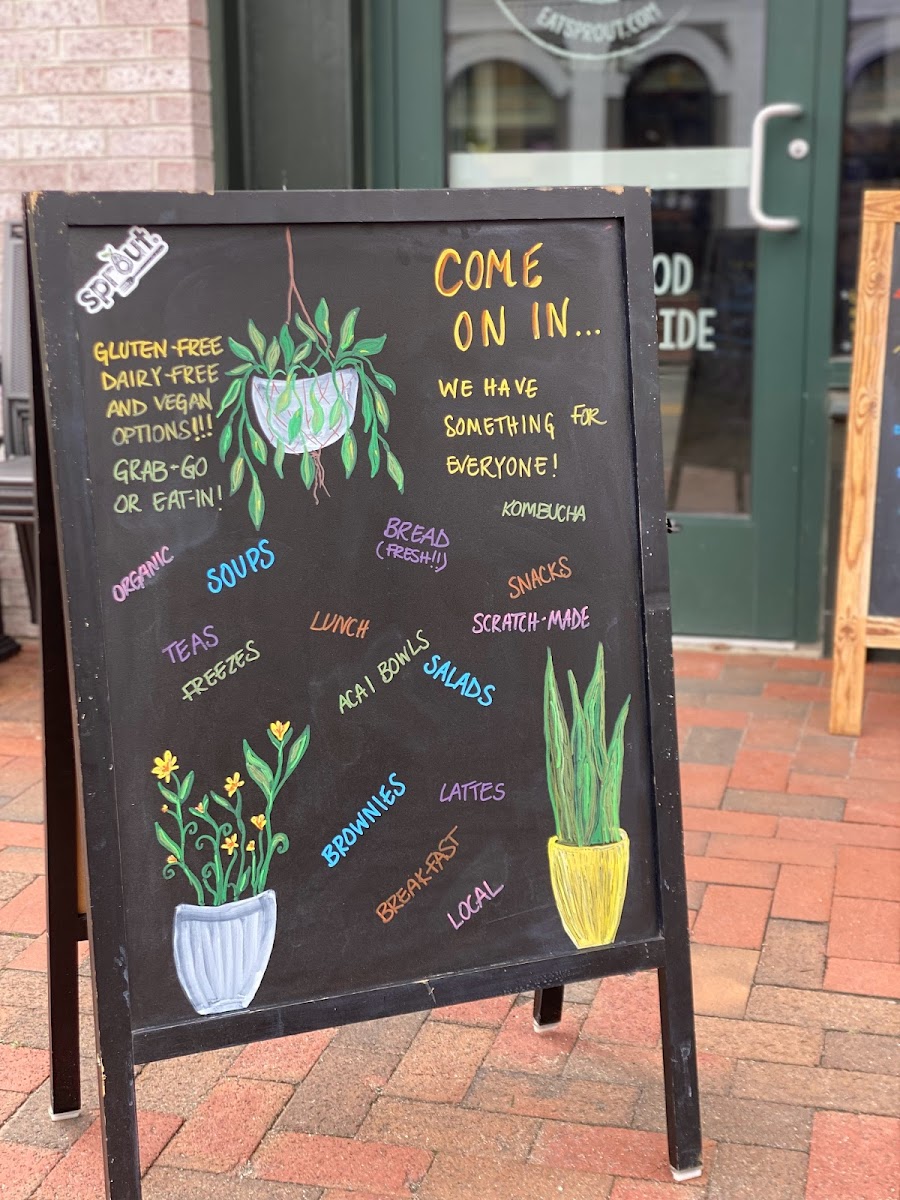 EATSPROUT.COM
OD
IDE
sprout.
COME
ON IN...
WE HAVE
SOMETHING FOR
EVERYONE!
GLUTEN-FREE
DAIRY-FREE
AND VEGAN
OPTIONS!!!
GRAB+GO
OR EAT-IN!
KOMBUCHA
BREAD
(FRESH!!)
ORGANIC
SOUPS
SNACKS
LUNCH
SCRATCH-MADE
TEAS
FREEZES
ACAI BOWLS
SALADS
BROWNIES
LATTES
BREAKFAST
LOCAL